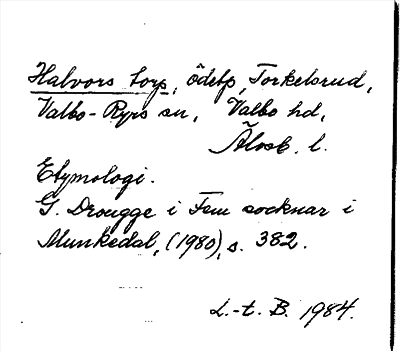 Halvors torp, ödetp, Torkelsrud,
Valbo-Ryrs sn, Valbo hd,
Älvsb. l.
Etymologi.
G. Drougge i Fem socknar i
Munkedal, (1980), s. 382.
L.-t. B. 1984.